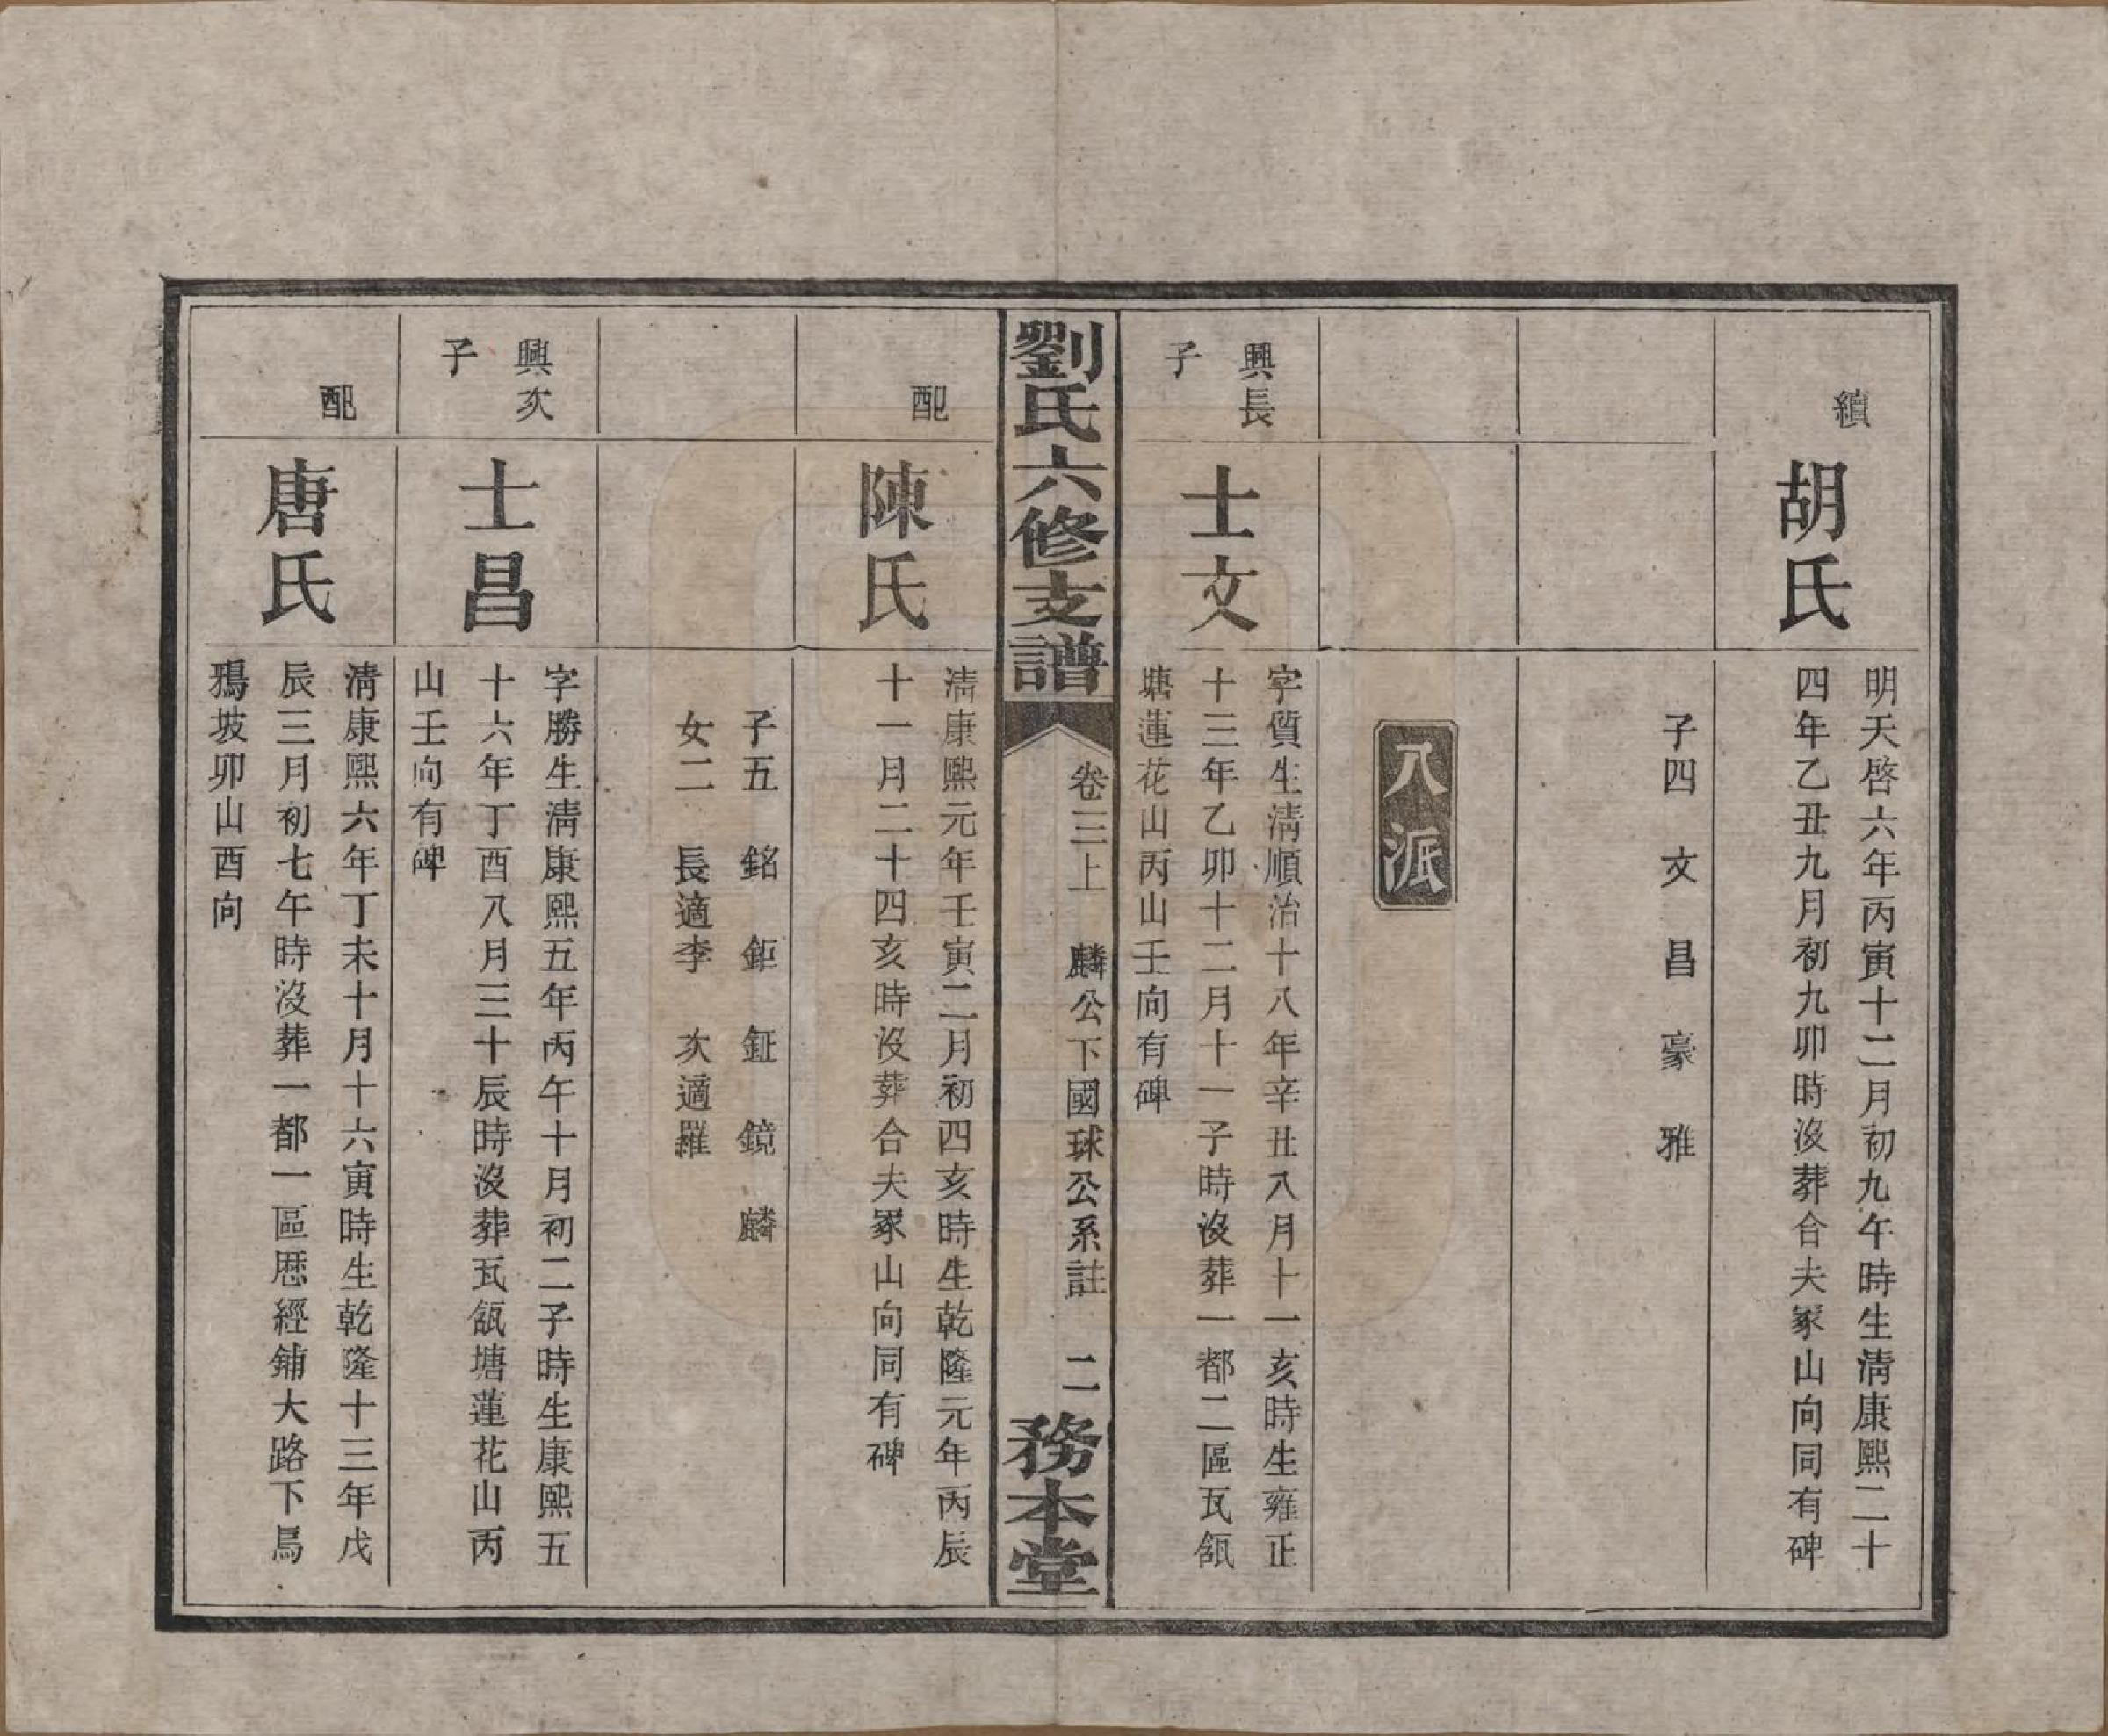 續
胡氏
明天啓六年丙寅十二月初九午時生清康熙二十
四年乙丑九月初九卯時沒葬合夫冢山向同有碑
子四　文　昌　豪　雅
八派
興長
子
士文
字質生清順治十八年辛丑八月十一亥時生雍正
十三年乙卯十二月十一子時沒葬一都二區瓦瓴
塘蓮花山丙山壬向有碑
劉氏六修支譜
卷三上　麟公下國球公系註　二
務本堂
配
陳氏
清康熙元年壬寅二月初四亥時生乾隆元年丙辰
十一月二十四亥時沒葬合夫冢山向同有碑
子五　銘　鉅　鉦　鏡　麟
女二　長適李　次適羅
興次
子
士昌
字勝生清康熙五年丙午十月初二子時生康熙五
十六年丁酉八月三十辰時沒葬瓦瓴塘蓮花山丙
山壬向有碑
配
唐氏
清康熙六年丁未十月十六寅時生乾隆十三年戊
辰三月初七午時沒葬一都一區厯經鋪大路下烏
鴉坡卯山酉向